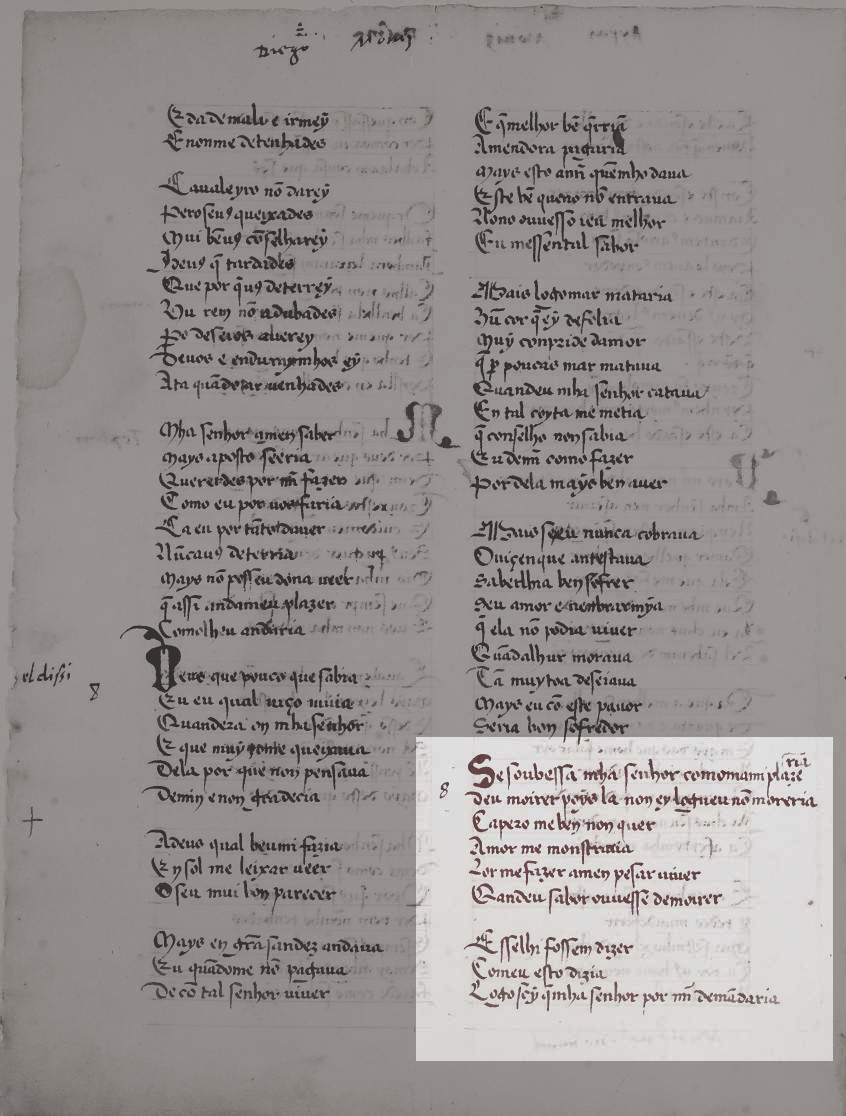 Diego
E da de mali e irmeỹ
E nonme detenhades
Caualeyro nõ dareỹ
Pero seuꝯ queixades
Mui bẽuꝯ cõselhareỹ
Que por q̃uꝯ deterreỹ
Hu rem nõ adubades
Deuos e enduraymhos eỹ
Ata quãdo tar uenhades
M
Mha senhor amen saber
mays aposto seeria
Queredes por mĩ fazer
Como eu por uos faria
Ca eu por tãto dauer
Nũcauꝯ deterria
Mays nõ posseu dona ueer
q̃ assi andameu plazer
Comolheu andaria
Deus que pouco que sabia
el dissi
8
Eu eu qual uiço muia
Quandera on mha senhor
E que muỹ queixaua
Dela por que non pensaua
Demin e non gradecia
A deus qual ben mi fazia
En sol me leixar ueer
O seu mui bon parecer
Mays en grã sandez andaua
Eu quãdome nõ pagaua
De cõ tal senhor uiuer
E q̃ melhor bẽ q̃rriã
Amendora pagaria
Mays esto quẽmho daua
Este bẽ queno nõ entraua
Nono ouuesso melhor
En messental sabor
Mais logomar mataria
Hũ cor q̃ eỹ de folia
Muỹ conpride damor
q̃ p̱ poucas mar mataua
Quandeu mha senhor cataua
En tal coyta me metia
q̃ conselho non sabia
Eu demĩ como fazer
Por dela maỹs ben auer
Mais seeu nunca cobraua
O uiçenque antestaua
Saberlhia ben sofrer
Seu amor e nenbrarmỹa
q̃ ela nõ podia uiuer
Quãdalhur moraua
Tã muytoa deseiaua
Mays eu cõ este pauor
Seria bon sofredor
8
Se soubessa mha senhor comomami plaze
rria
Deu moirer poỹs la non eỹ logueu nõ moreria
Capero me ben non quer
Amor me monstraria
Por me fazer amen pesar uiuer
Qandeu sabor ouuesse demoirer
E sselhi fossem dizer
Comeu esto dizia
Logo seỹ q̃ mha senhor por mĩ demãdaria